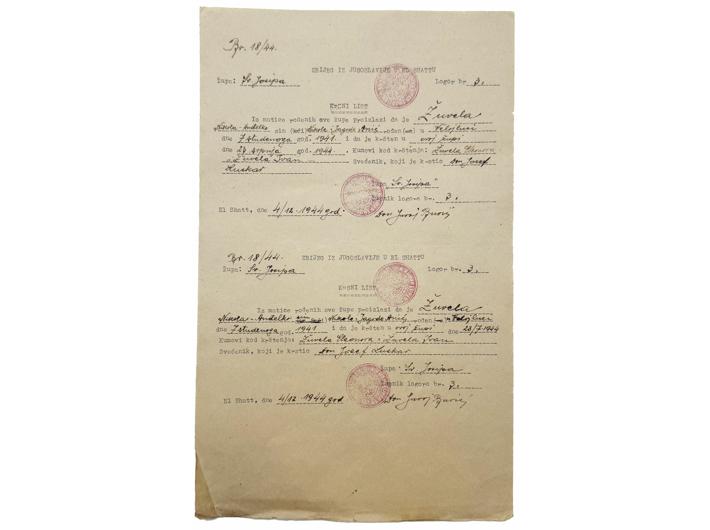 Br. 18/44.
ZBIJEG IZ JUGOSLAVIJE U EL SHATTU
Župa: Sv. Josipa Logor br. 3.
KRSNI LIST
Iz matice rođenih ove župe proizlazi da je Žuvela
Nikola-Anđelko sin (kći) Nikole i Jagode rođen(na) u
dne 7 studenoga god. 1941 i da je kršten u ovoj župi
dne god. 1944. Kumovi kod krštenja: Žuvela Eleonora
i Žuvela Ivan Svećenik, koji je krstio don Josef
Luskar
Župa "Sv. Josipa"
Župnik logora br. 3.
El Shatt, dne 4/12. 1944 god. don Juraj
Br. 18/44.
ZBIJEG IZ JUGOSLAVIJE U EL SHATTU
Župa: Sv. Josipa Logor br. 3.
KRSNI LIST
Iz matice rođenih ove župe proizlazi da je Žuvela
Nikola-Anđelko sin Nikole i Jagode rođen u
dne 7 studenoga god. 1941 i da je kršten u ovoj župi dne 23/7 1944
Kumovi kod krštenja: Žuvela Eleonora i Žuvela Ivan
Svećenik, koji je krstio don Josef Luskar
Župa: Sv. Josipa
Župnik logora br. 3.
El Shatt, dne 4/12. 1944 god. don Juraj